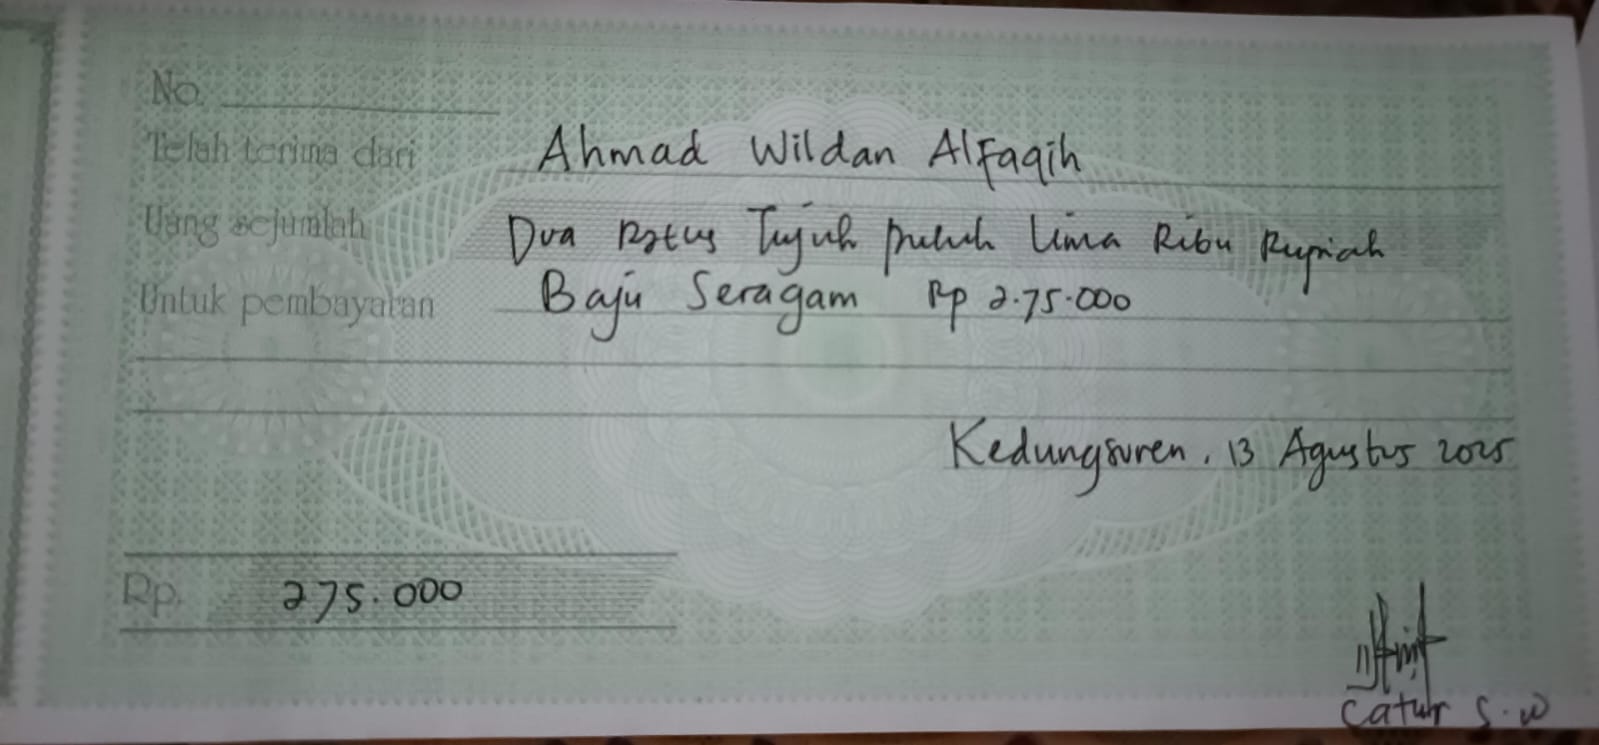 No.
Telah terima dari Ahmad Wildan Alfaqih
Uang sejumlah Dua Ratus Tujuh puluh Lima Ribu Rupiah
Untuk pembayaran Baju Seragam Rp 2.75.000
Kedungsuren, 13 Agustus 2025
Rp. 275.000
Catur S.W